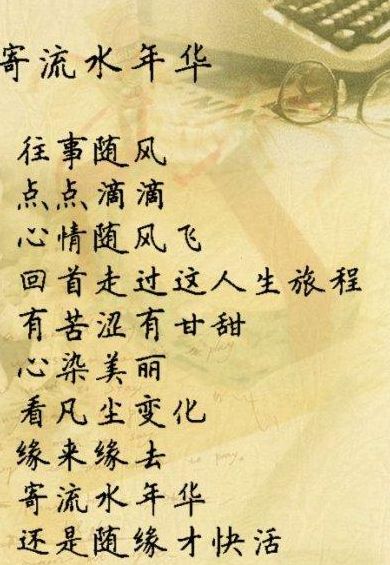 寄流水年华
往事随风
点点滴滴
心情随风飞
回首走过这人生旅程
有苦涩有甘甜
心染美丽
看凡尘变化
缘来缘去
寄流水年华
还是随缘才快活